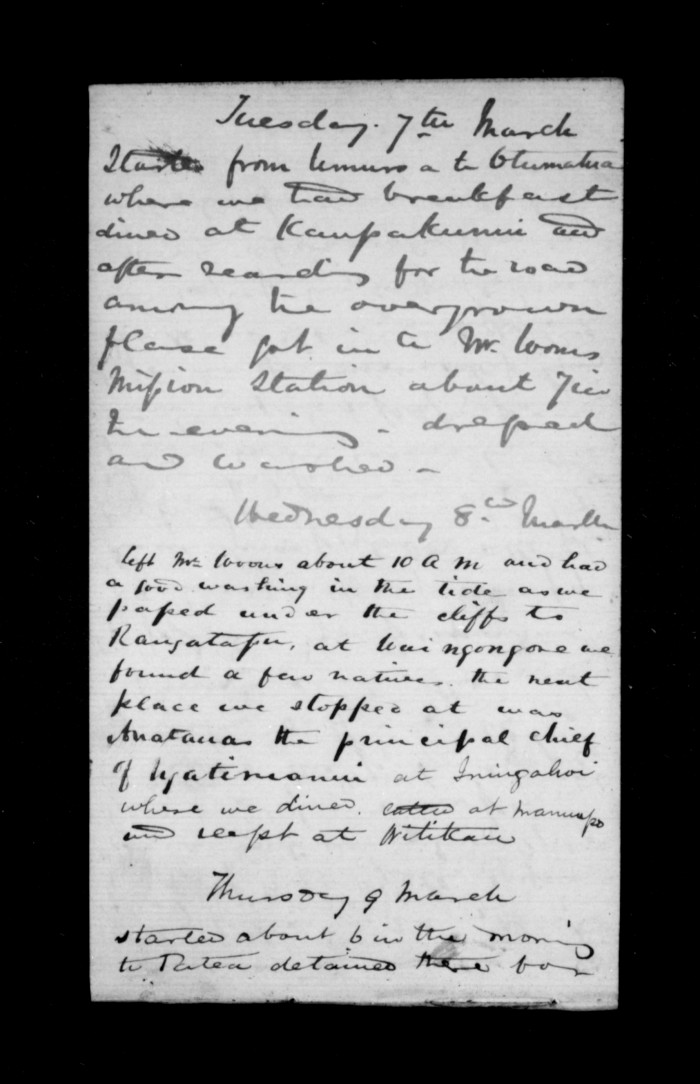 Tuesday. 7th March
Started from Umuroa to Otumatua
where we had breakfast
dined at Kaupakunui and
after searching for the road
among the overgrown
please got in to Mr. Woons
Mission Station about 7 in
the evening - dressed
and washed -
Wednesday 8th March
left Mr Woons about 10 A M and had
a good washing in the tide as we
passed under the cliffs to
Rangatapu, at Waingongoro we
found a few natives. the next
place we stopped at was
Anatauas the principal chief
of Ngatiruanui at Ingahoi
where we dined. called at Manu
and slept at Witikau
Thursday 9 March
started about 6 in the morning
to Patea detained there